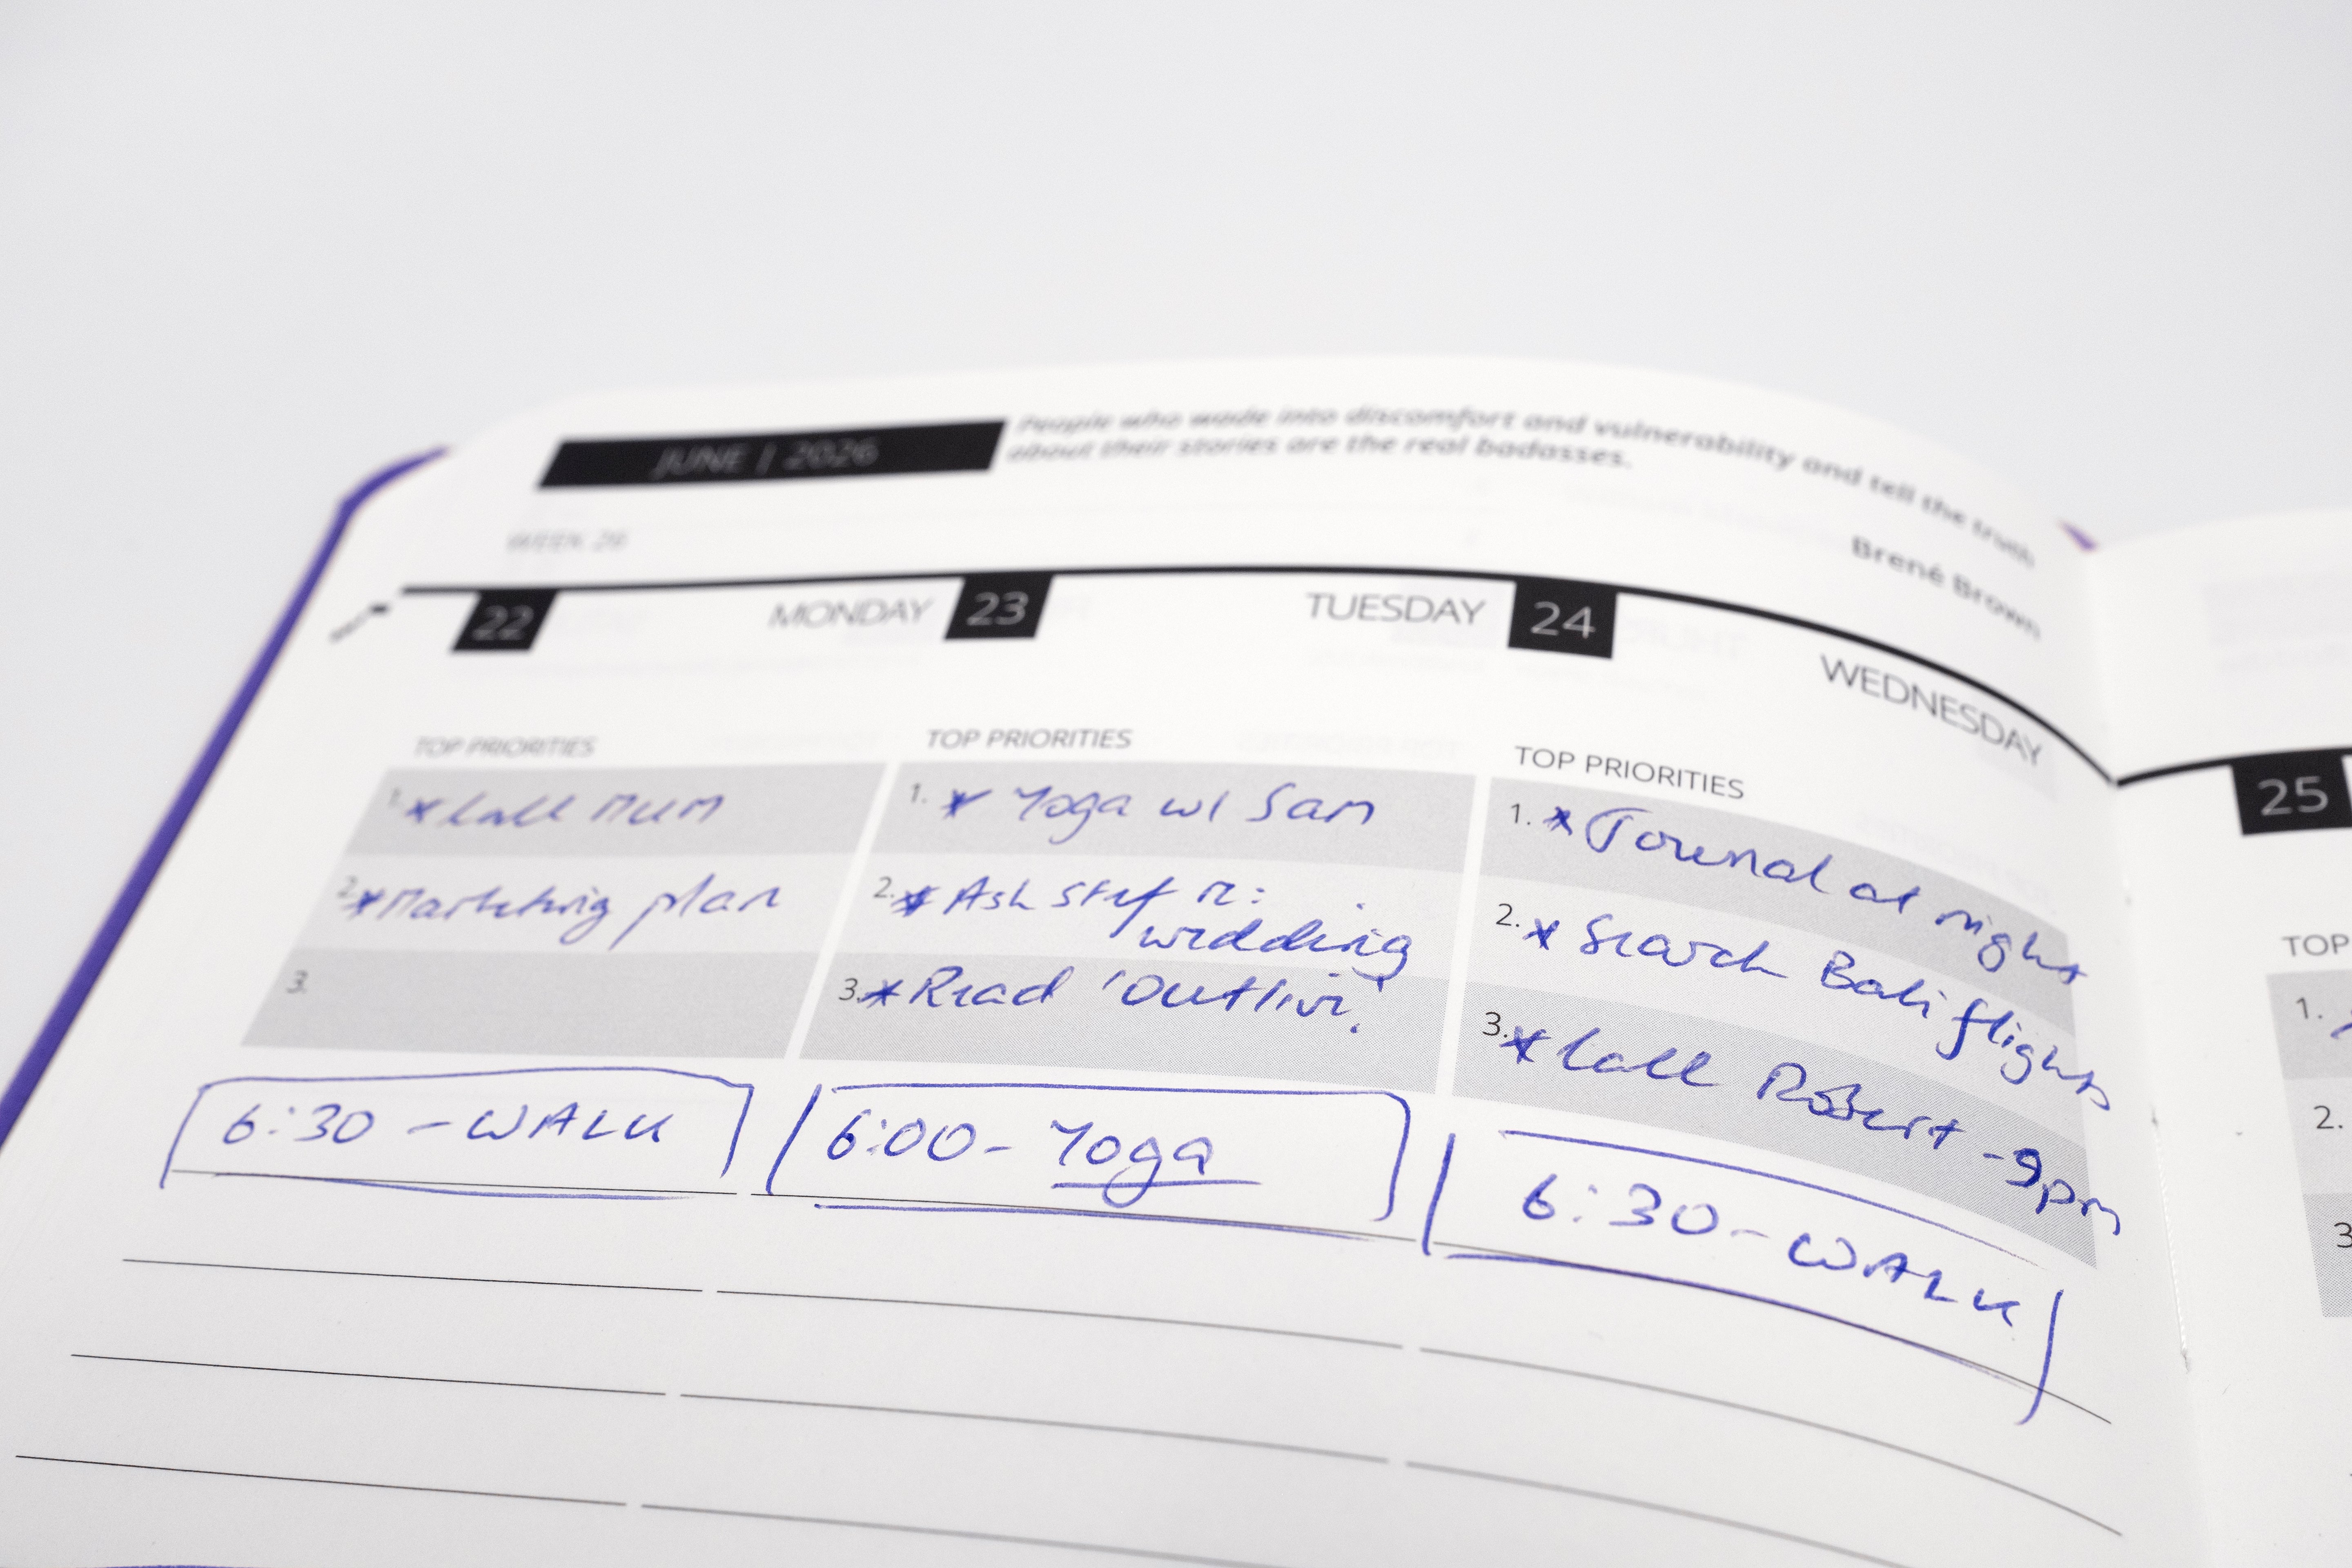 JUNE | 2026
People who wade into discomfort and vulnerability and tell the truth
about their stories are the real badasses.
Brené Brown
WEEK 26
22 MONDAY
TOP PRIORITIES
1. * Call MUM
2. * Marketing plan
3.
6:30 - WALK
23 TUESDAY
TOP PRIORITIES
1. * Yoga w/ Sam
2. * Ask Stef re:
wedding
3. * Read 'Outlive'
6:00 - Yoga
24 WEDNESDAY
TOP PRIORITIES
1. * Journal at night
2. * Search Bali flights
3. * Call Robert - 9pm
6:30 - WALK
25
TOP
1.
2.
3